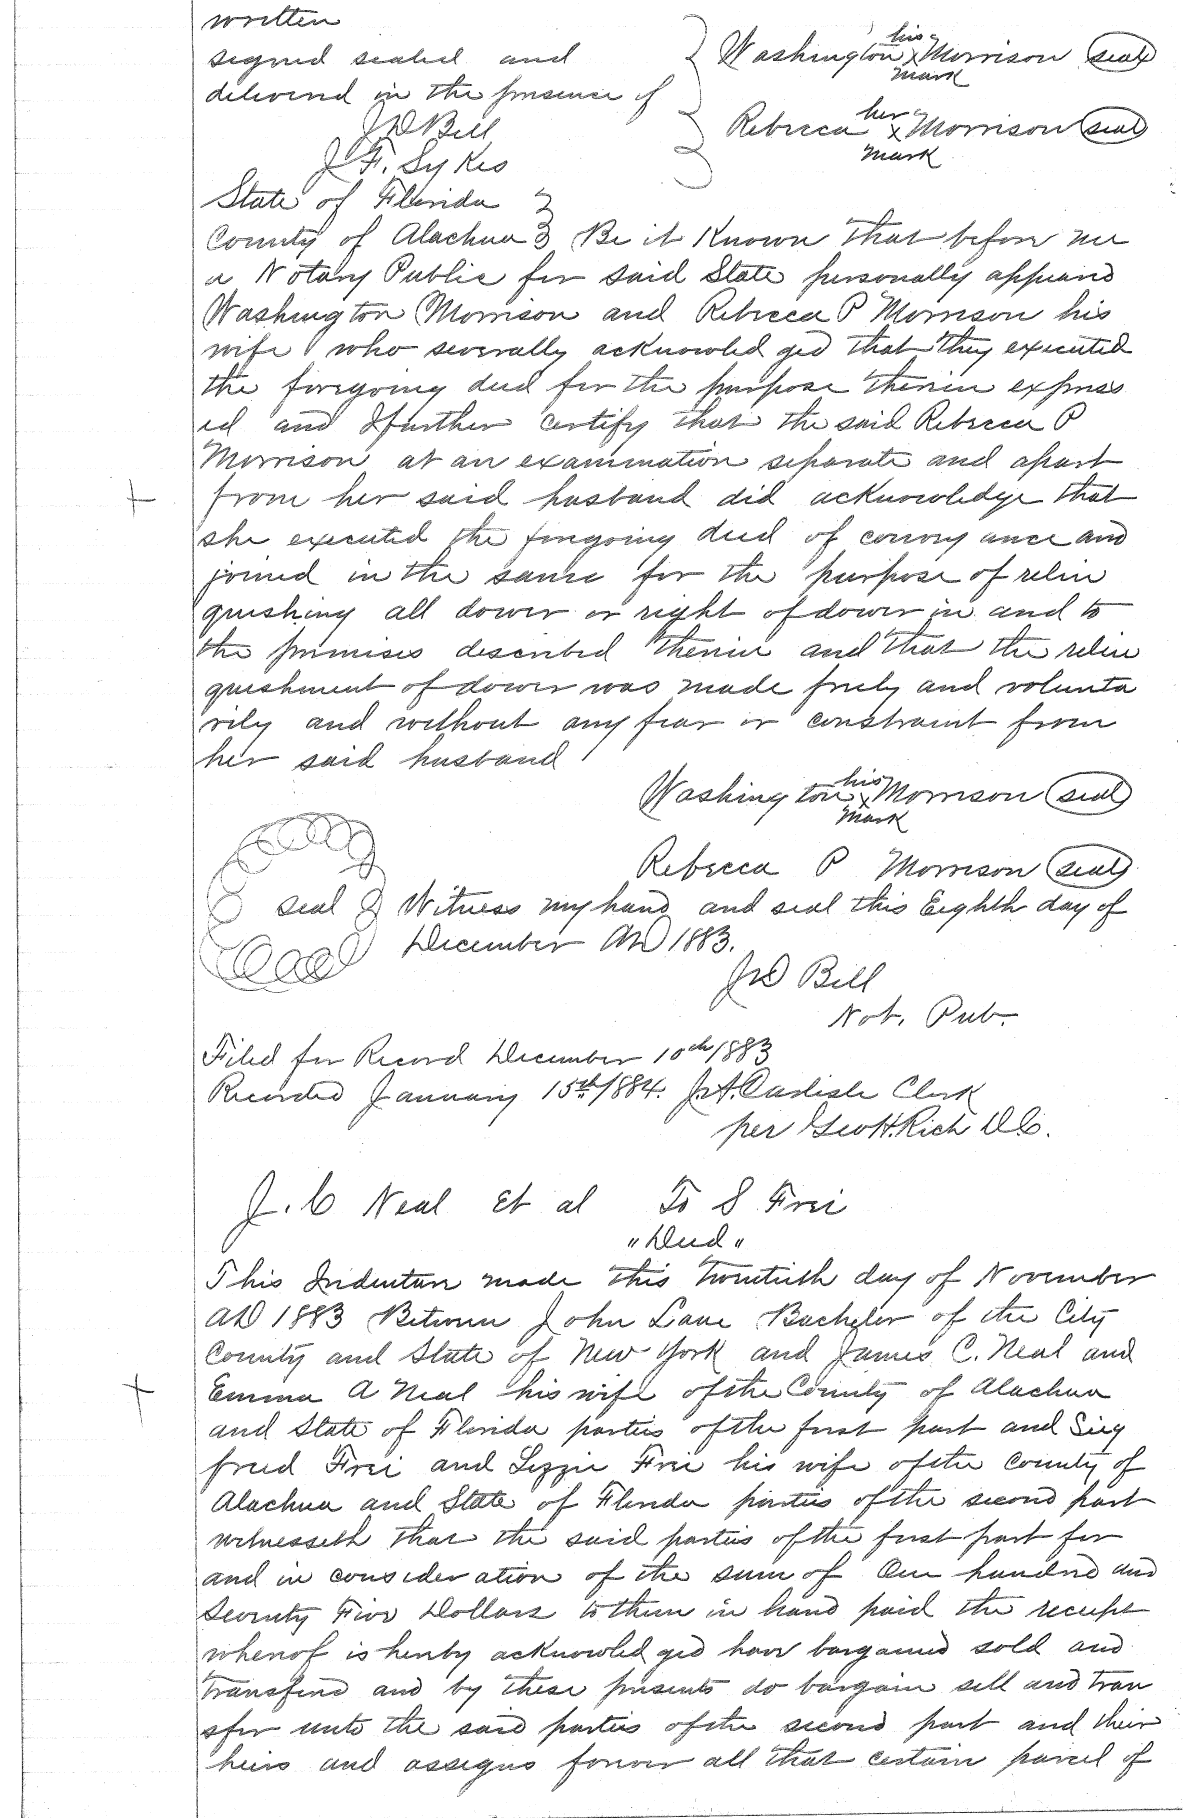 written
signed sealed and
delivered in the presence of
J D Bill
J. F. Sykes
his
Washington x Morrison seal
mark
her
Rebecca x Morrison seal
mark
State of Florida
County of Alachua Be it Known that before me
a Notary Public for said State personally appeared
Washington Morrison and Rebecca P Morrison his
wife who severally acknowled ged that they executed
the foregoing deed for the purpose therein express
ed and I further certify that the said Rebecca P
Morrison at an examination separate and apart
from her said husband did acknowledge that
she executed the foregoing deed of convey ance and
joined in the same for the purpose of relin
quishing all dower or right of dower in and to
the premises described therein and that the relin
quishment of dower was made freely and volunta
rily and without any fear or constraint from
her said husband
his
Washington x Morrison seal
mark
Rebecca P Morrison seal
seal Witness my hand and seal this Eighth day of
December AD 1883.
J D Bill
Not. Pub.
Filed for Record December 10th/1883
Recorded January 15th/1884. J. A. Carlisle Clerk
per Geo H. Rich D.C.
J. C Neal Et al To S Frei
"Deed"
This Indenture made this twentieth day of November
AD 1883 Between John Lane Bachelor of the City
County and State of New York and James C. Neal and
Emma A Neal his wife of the County of Alachua
and State of Florida parties of the first part and Sieg
freed Frei and Lizzie Frei his wife of the County of
Alachua and State of Florida parties of the second part
witnesseth that the said parties of the first part for
and in consideration of the sum of One hundred and
Seventy Five Dollars to them in hand paid the receipt
whereof is hereby acknowled ged have bargained sold and
transfered and by these presents do bargain sell and tran
sfer unto the said parties of the second part and their
heirs and assigns forever all that certain parcel of